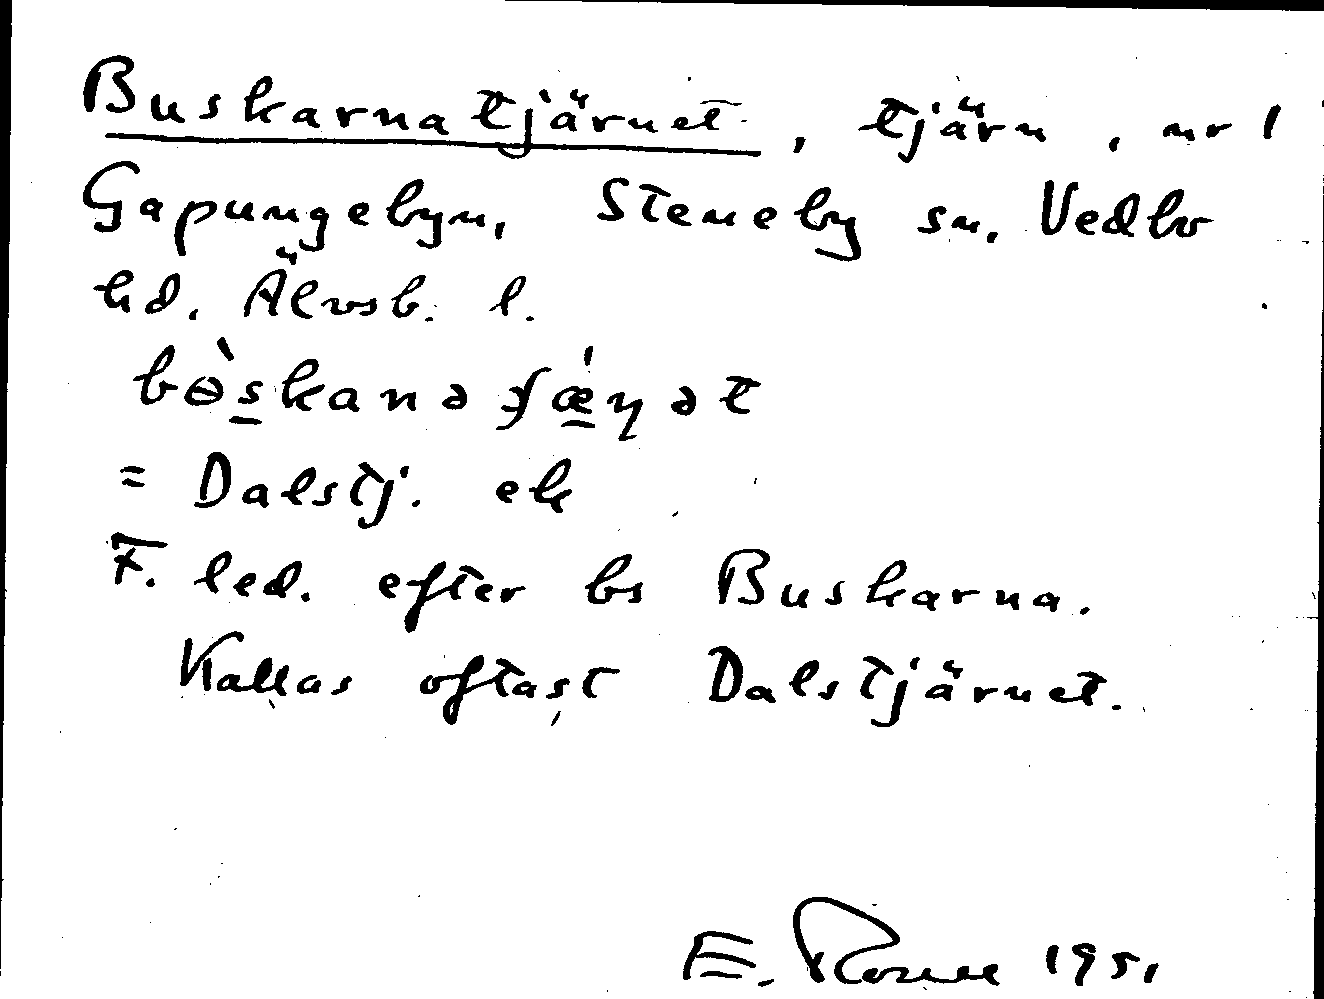 Buskarnatjärnet, tjärn, nr 1
Gapungebyn, Steneby sn. Vedbo
hd. Älvsb. l.
= Dalstj. ek
F. led. efter bs Buskarna.
Kallas oftast Dalstjärnet.
E. 1951